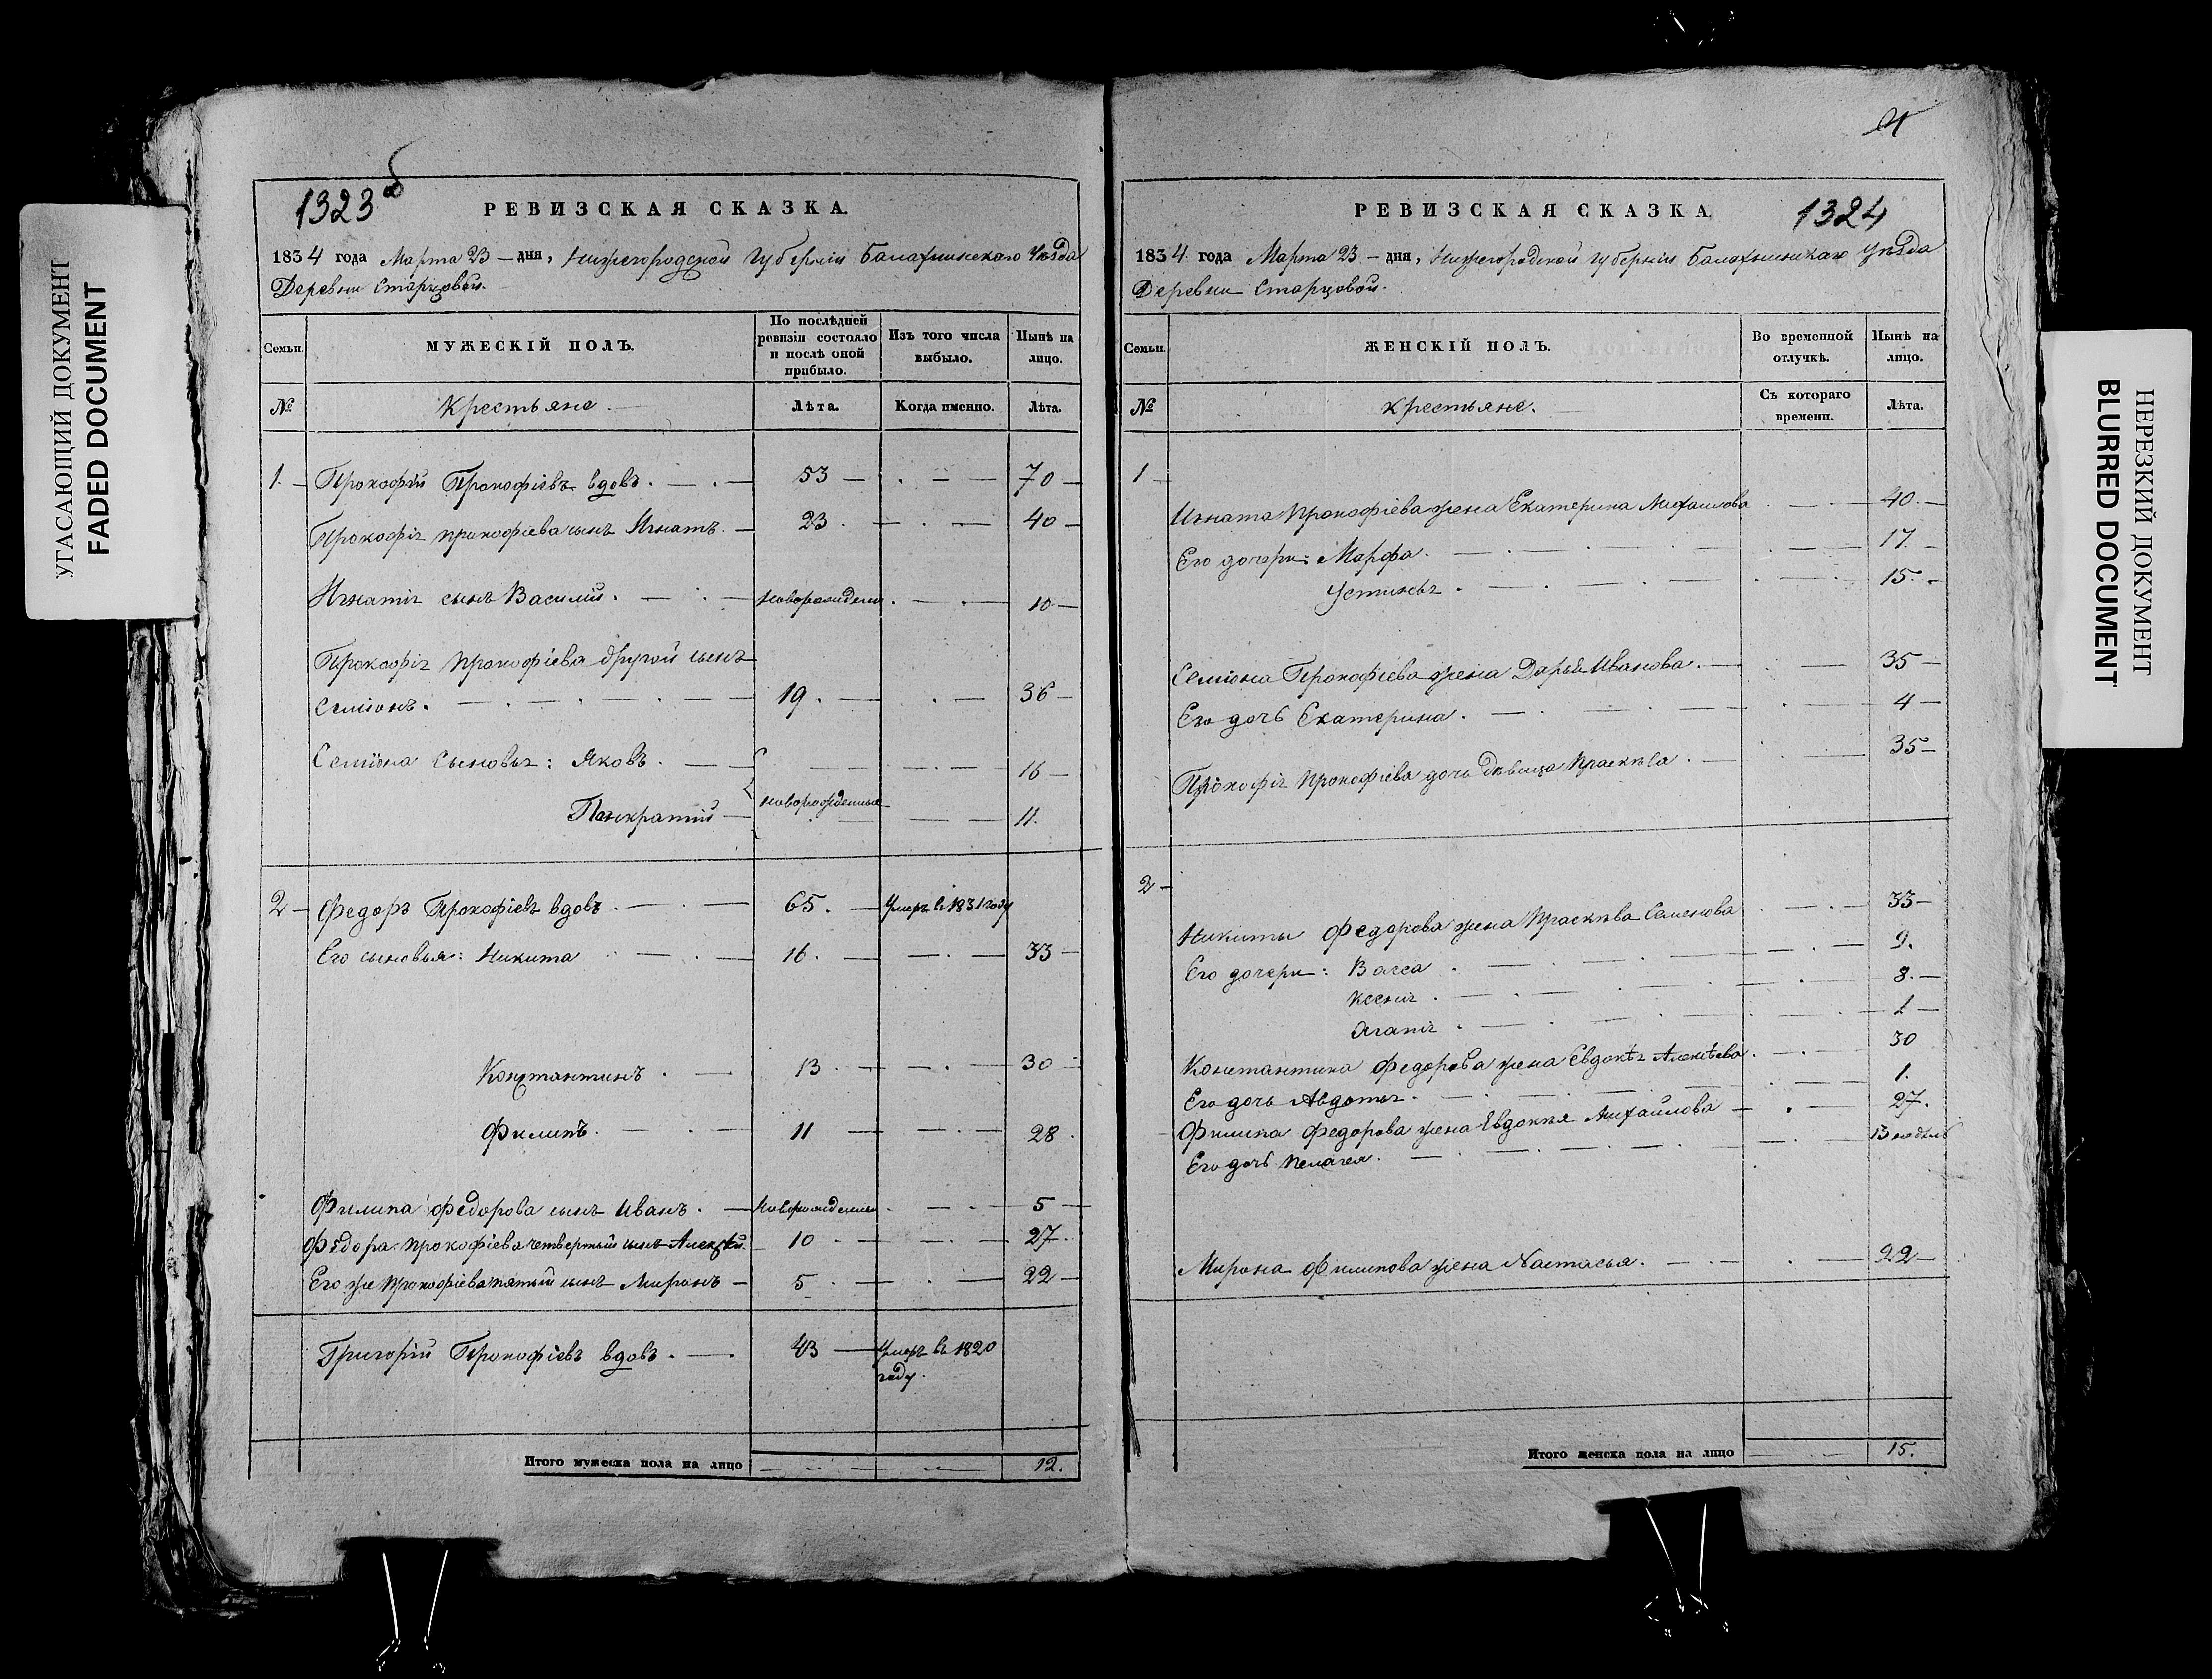 УГАСАЮЩИЙ ДОКУМЕНТ
FADED DOCUMENT
1323 б
РЕВИЗСКАЯ СКАЗКА.
1834 года Марта 23 — дня, Нижегородской губернии Балахнинскаго Уѣзда
Деревни Старцовой.
Семьи.
МУЖЕСКІЙ ПОЛЪ.
По послѣдней ревизіи состояло и послѣ оной прибыло.
Изъ того числа выбыло.
Нынѣ на лицо.
№
Крестьяне.
Лѣта.
Когда именно.
Лѣта.
1. Прокофій Прокофіевъ вдовъ. 53 — 70
Прокофія прокофіева сынъ Игнатъ. 23. 40
Игнатія сынъ Василій. новорожденн. 10
Прокофія прокофіева другой сынъ
Семіонъ. 19. 36
Семіона сыновья: Яковъ. 16
Панкратій новорожденные 11.
2 Федоръ Прокофіевъ вдовъ. 65. Умеръ въ 1831 году
Его сыновья: Никита 16. 33
Константинъ. 13. 30
Филипъ. 11 28.
Филипа Федорова сынъ Иванъ. новорожденный 5
Федора прокофіева четвертый сынъ Алексѣй. 10 27.
Его же Прокофіева пятый сынъ Миронъ 5. 22
Григорій Прокофіевъ вдовъ. 43 Умеръ въ 1820
году.
Итого мужеска пола на лицо 12.
РЕВИЗСКАЯ СКАЗКА.
1324
1834 года Марта 23 — дня, Нижегородской губерніи Балахнинскаго Уѣзда
Деревни Старцовой.
Семьи.
ЖЕНСКІЙ ПОЛЪ.
Во временной отлучкѣ.
Нынѣ на лицо.
№
крестьяне.
Съ котораго времени.
Лѣта.
1
Игната Прокофіева жена Екатерина Михаилова 40.
Его дочери: Марфа. 17.
Устинья. 15.
Семіона Прокофіева жена Дарья Иванова. 35
Его дочь Екатерина. 4
Прокофія Прокофіева дочь дѣвица Прасковья. 35
2
Никиты Федорова жена Прасковья Семенова 33
Его дочери: Васса 9.
Ксенія. 3.
Агапія. 1
Константина Федорова жена Евдокѣя Алексѣева. 30
Его дочь Авдотья. 1.
Филипа Федорова жена Евдокея Михайлова 27.
Его дочь Пелагея. 13 недѣль
Мирона Филипова жена Настасья. 22
Итого женска пола на лицо 15.
НЕРЕЗКИЙ ДОКУМЕНТ
BLURRED DOCUMENT